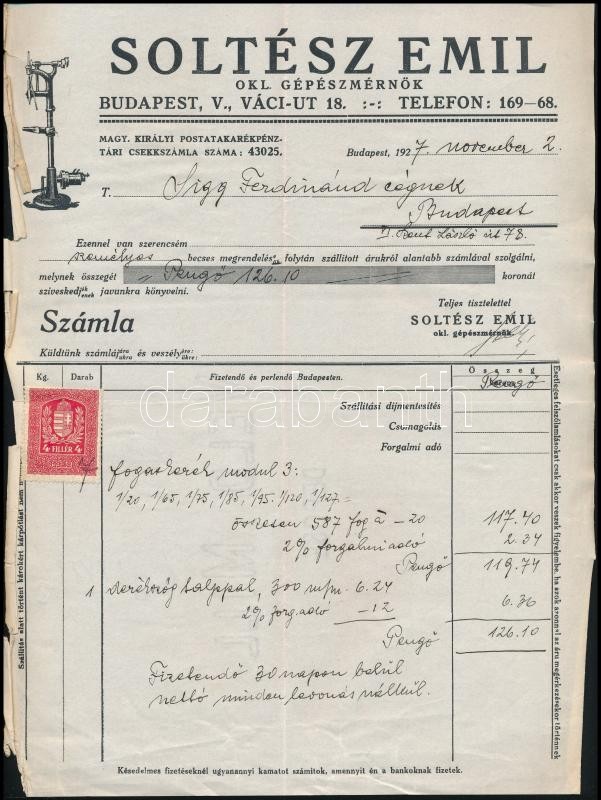 SOLTÉSZ EMIL
OKL. GÉPÉSZMÉRNÖK
BUDAPEST, V., VÁCI-UT 18. :-: TELEFON: 169—68.
MAGY. KIRÁLYI POSTATAKARÉKPÉNZ-
TÁRI CSEKKSZÁMLA SZÁMA: 43025.
Budapest, 1927. november 2.
T. Sigg Ferdinánd cégnek
Budapest
Szent László út 78.
Ezennel van szerencsém
személyes becses megrendelés folytán szállított árukról alantabb számlával szolgálni,
melynek összegét = Pengő 126.10 koronát
sziveskedjék javunkra könyvelni.
Teljes tisztelettel
SOLTÉSZ EMIL
okl. gépészmérnök.
Számla
Küldtünk számlájára és veszélyére:
Kg. Darab Fizetendő és perlendő Budapesten. Összeg
Pengő
Szállítási díjmentesítés
Csomagolás
Forgalmi adó
4 FILLÉR 4
7 fogaskerék modul 3:
1/20, 1/65, 1/75, 1/85, 1/95. 1/120, 1/127 =
összesen 587 fog à —20 117.40
2% forgalmi adó 2.34
Pengő 119.74
1 derékszög talppal, 300 m/m. 6.24
2% forg. adó —12 6.36
Pengő 126.10
Fizetendő 30 napon belül
nettó minden levonás nélkül.
Késedelmes fizetéseknél ugyanannyi kamatot számitok, amennyit én a bankoknak fizetek.
Szállítás alatt történt károkért kárpótlást nem
Esetleges felszólamlásokat csak akkor veszek figyelembe, ha azok azonnal az áru megérkezésekor történnek
darabanth